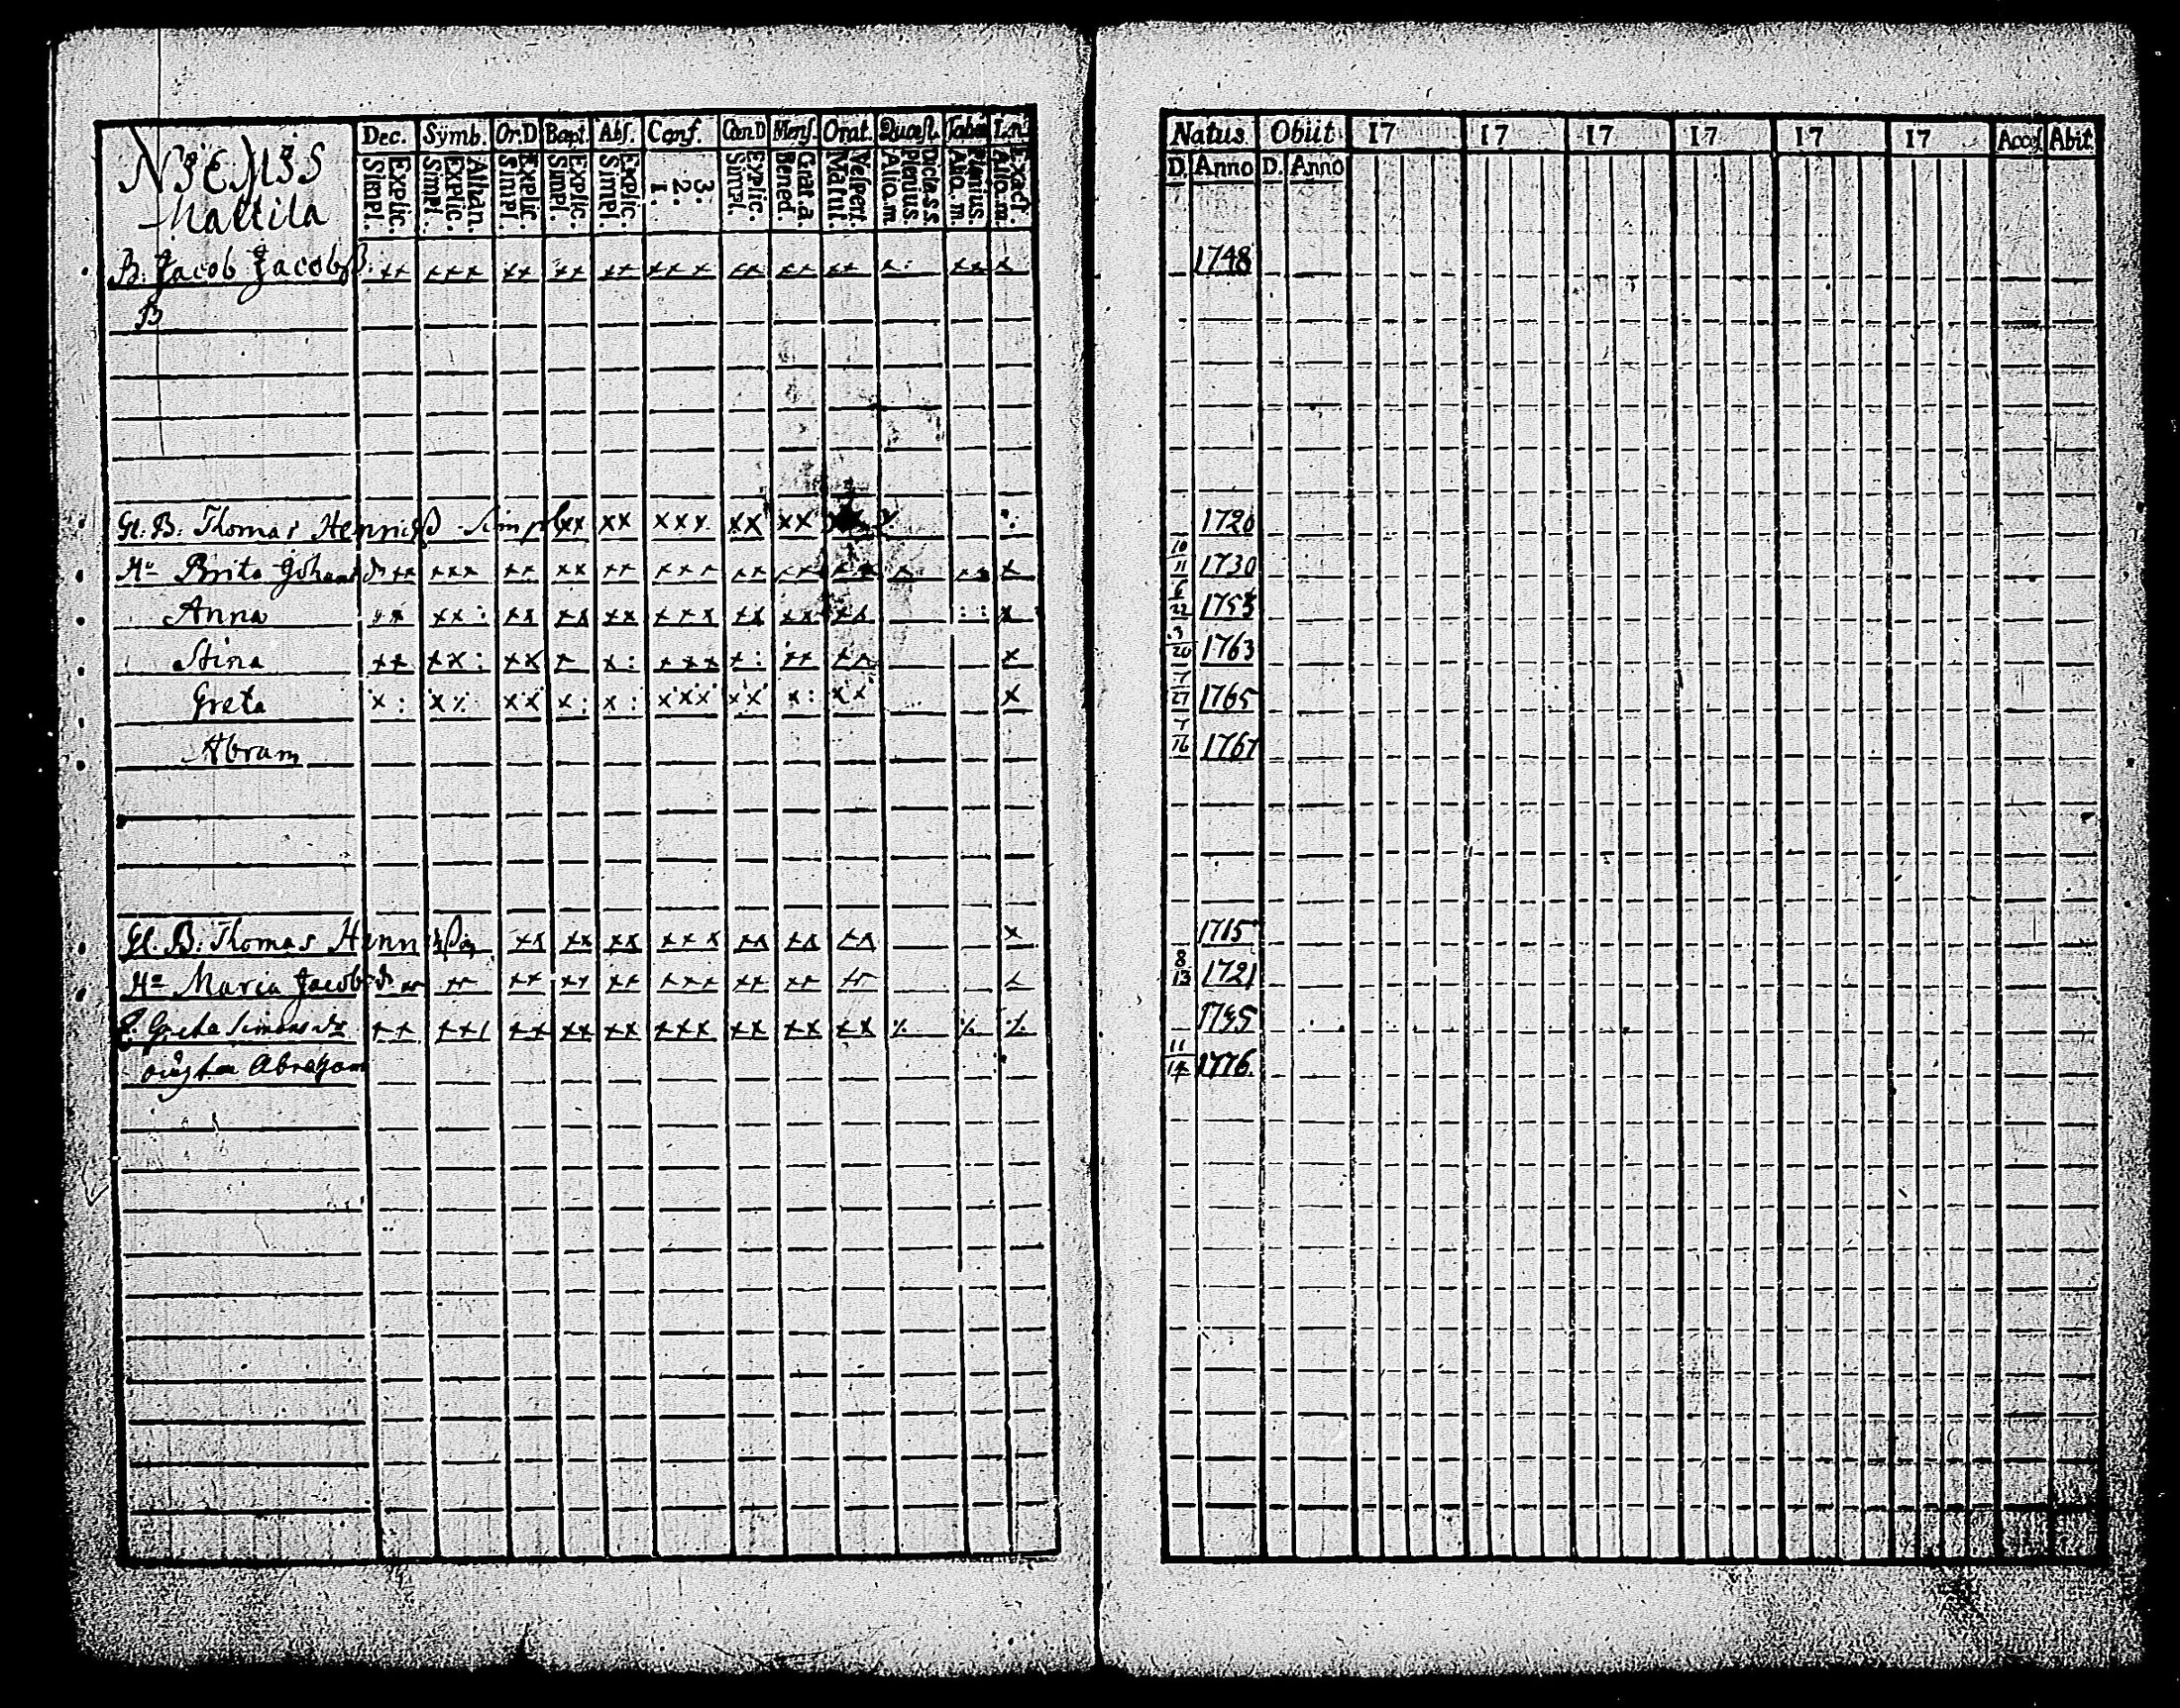 Dec. Symb. Or.D Bapt. Abs. Conf. Can.D Mens. Orat. Quæst. Tabu
Simpl. Explic. Simpl. Explic. Athan. Simpl. Explic. Simpl. Explic. Simpl. Explic. 1. 2. 3. Simpl. Explic. Bened. Grat. a Matut. Vespert. Alio. m. Plenius. Dicta. s.s. Alio. m. Plenius. Alio. m. Exact.
Mattila
B. Jacob Jacobsß. xx xxx xx xx xx xxx xx xx xx x: xx x
B
Gl. B. Thomas Henricsß Simpl xx xx xxx xx xx
Hu Brita Johansdr xx xxx xx xx xx xxx xx xx xx x xx x
Anna xx xx: xx xx xx xxx xx xx xx :: x
Stina xx xx: xx x x: xxx x: xx xx x
Greta x: x% xx x: x: xxx xx x: xx x
Abram
Gl. B. Thomas xx xx xx xxx xx xx xx x
Hu Maria Jacobsdr xx xx xx xx xx xxx xx xx xx x
Greta Simonsdr xx xxx xx xx xx xxx xx xx xx % % %
Abraham
Natus Obiit 17 17 17 17 17 17 Acces Abit
D. Anno D. Anno
1748
1720
10/11 1730
6/22 1753
9/20 1763
7/27 1765
7/16 1767
1715
8/13 1721
1735
11/14 1776.